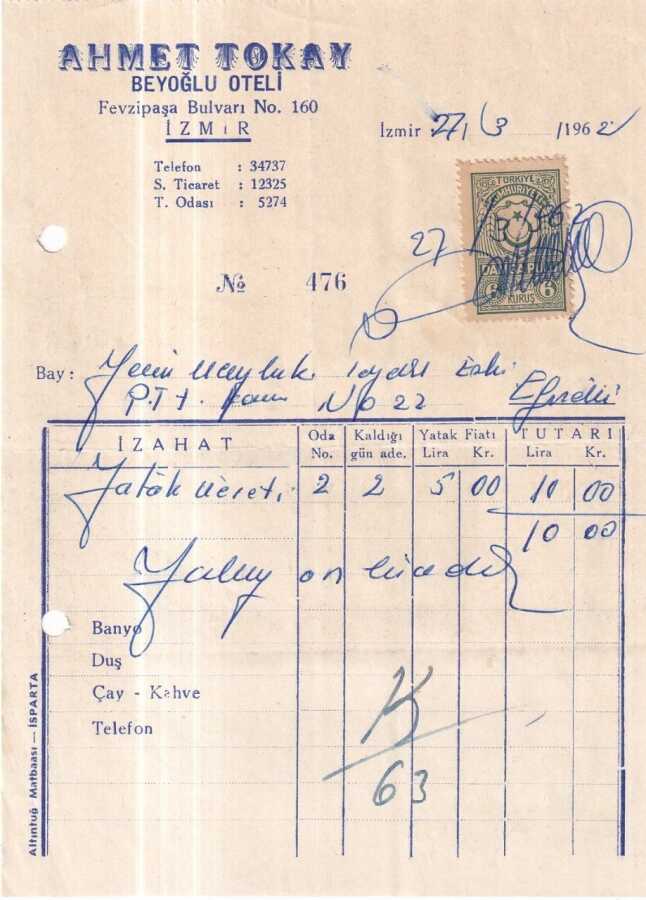 AHMET TOKAY
BEYOĞLU OTELİ
Fevzipaşa Bulvarı No. 160
İZMİR
İzmir 27/3/1962
Telefon : 34737
S. Ticaret : 12325
T. Odası : 5274
TÜRKİYE
CUMHURİYETİ
27/3/962
DAMGA PULU
6 KURUŞ 6
No 476
Bay :
P.T.T. No 22
İZAHAT Oda No. Kaldığı gün ade. Yatak Fiatı Lira Kr. TUTARI Lira Kr.
Yatak ücreti 2 2 5 00 10 00
10 00
Yalnız on liradır
Banyo
Duş
Çay - Kahve
Telefon
63
Altıntuğ Matbaası — ISPARTA